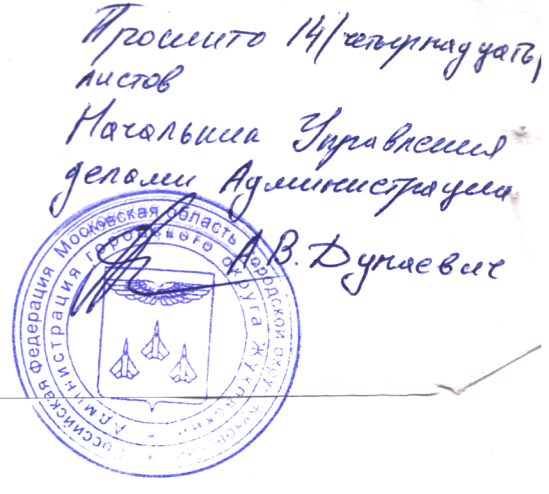 Прошито 14/четырнадцать/
листов
Начальник Управления
делами Администрации
А.В. Дунаевич
Российская Федерация Московская область Городской округ Жуковский
Администрация городского округа Жуковский